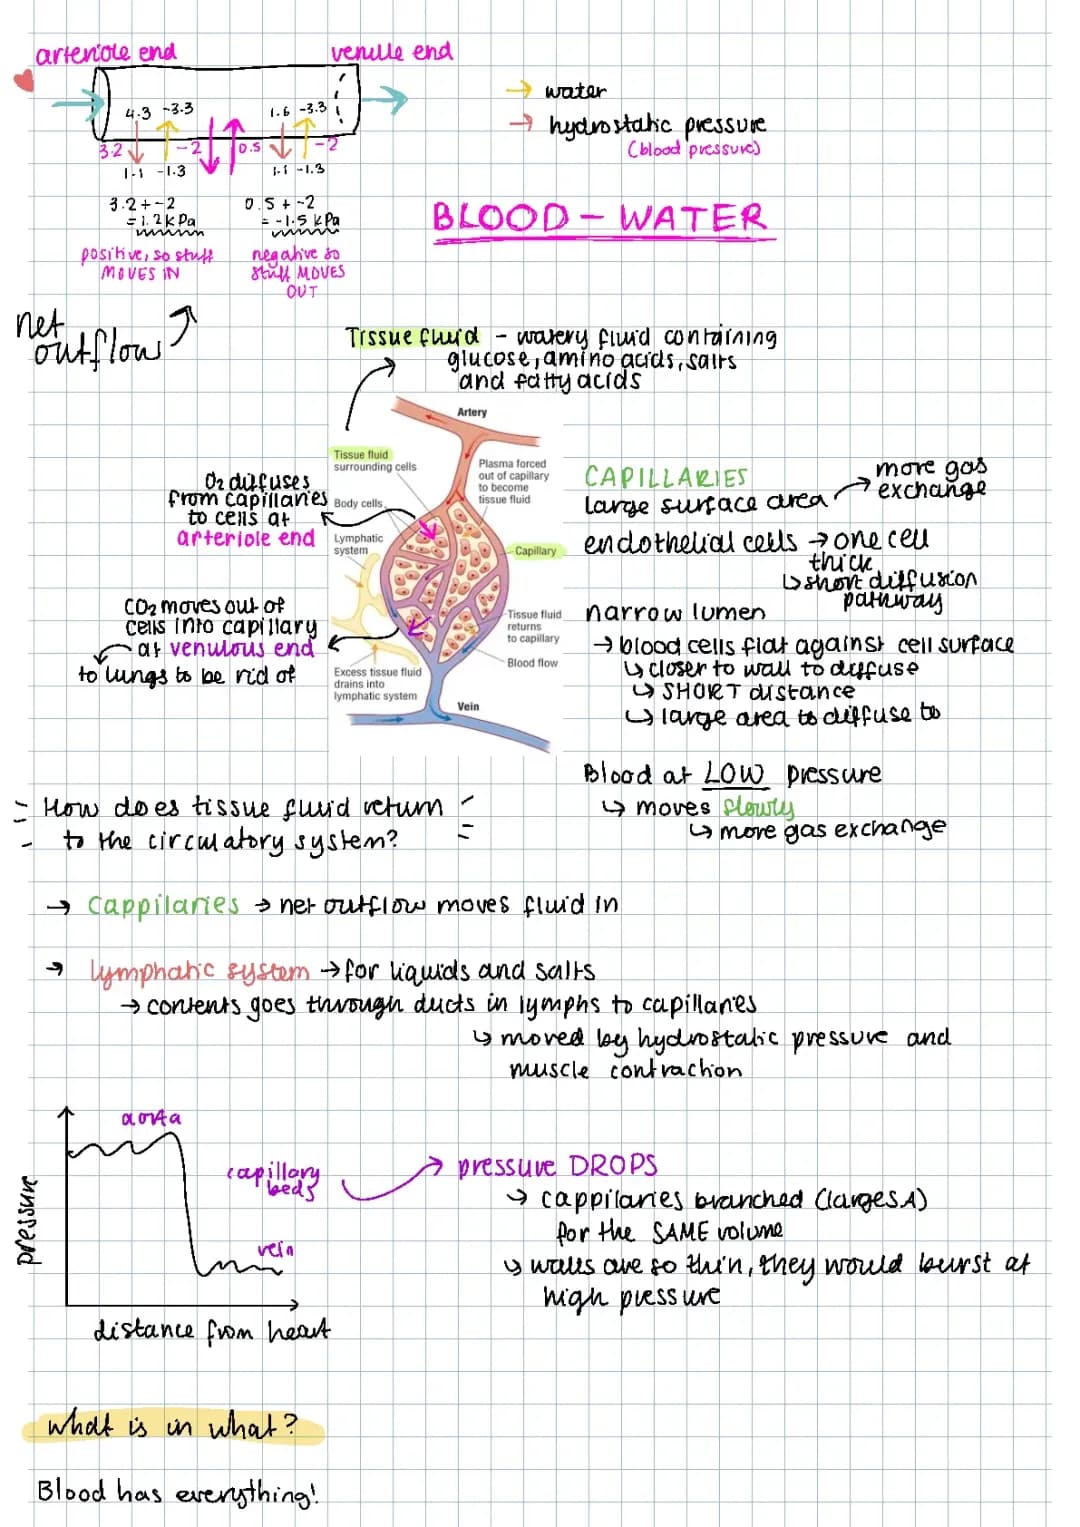 arteriole end
venule end
4.3 -3.3
1.6 -3.3
3.2
-2
0.5
-2
1.1 -1.3
1.1 -1.3
3.2+-2
=1.2kPa
positive, so stuff
MOVES IN
0.5 + -2
= -1.5 kPa
negative so
stuff MOVES
OUT
→ water
→ hydrostatic pressure
(blood pressure)
BLOOD - WATER
net
outflow
Tissue fluid - watery fluid containing
glucose, amino acids, salts
and fatty acids
Artery
Tissue fluid
surrounding cells
Plasma forced
out of capillary
to become
tissue fluid
Body cells
Lymphatic
system
Capillary
Tissue fluid
returns
to capillary
Blood flow
Excess tissue fluid
drains into
lymphatic system
Vein
O2 diffuses
from capillaries
to cells at
arteriole end
CO2 moves out of
cells into capillary
at venulous end
to lungs to be rid of
CAPILLARIES
large surface area → more gas
exchange
endothelial cells → one cell
thick
↳ short diffusion
pathway
narrow lumen
→ blood cells flat against cell surface
↳ closer to wall to diffuse
↳ SHORT distance
↳ large area to diffuse to
Blood at LOW pressure
↳ moves slowly
↳ more gas exchange
How does tissue fluid return
to the circulatory system?
→ cappilaries → net outflow moves fluid in
→ lymphatic system → for liquids and salts
→ contents goes through ducts in lymphs to capillaries
↳ moved by hydrostatic pressure and
muscle contraction
pressure
aorta
capillary
beds
vein
distance from heart
→ pressure DROPS
↳ cappilaries branched (large SA)
for the SAME volume
↳ walls are so thin, they would burst at
high pressure
What is in what?
Blood has everything!